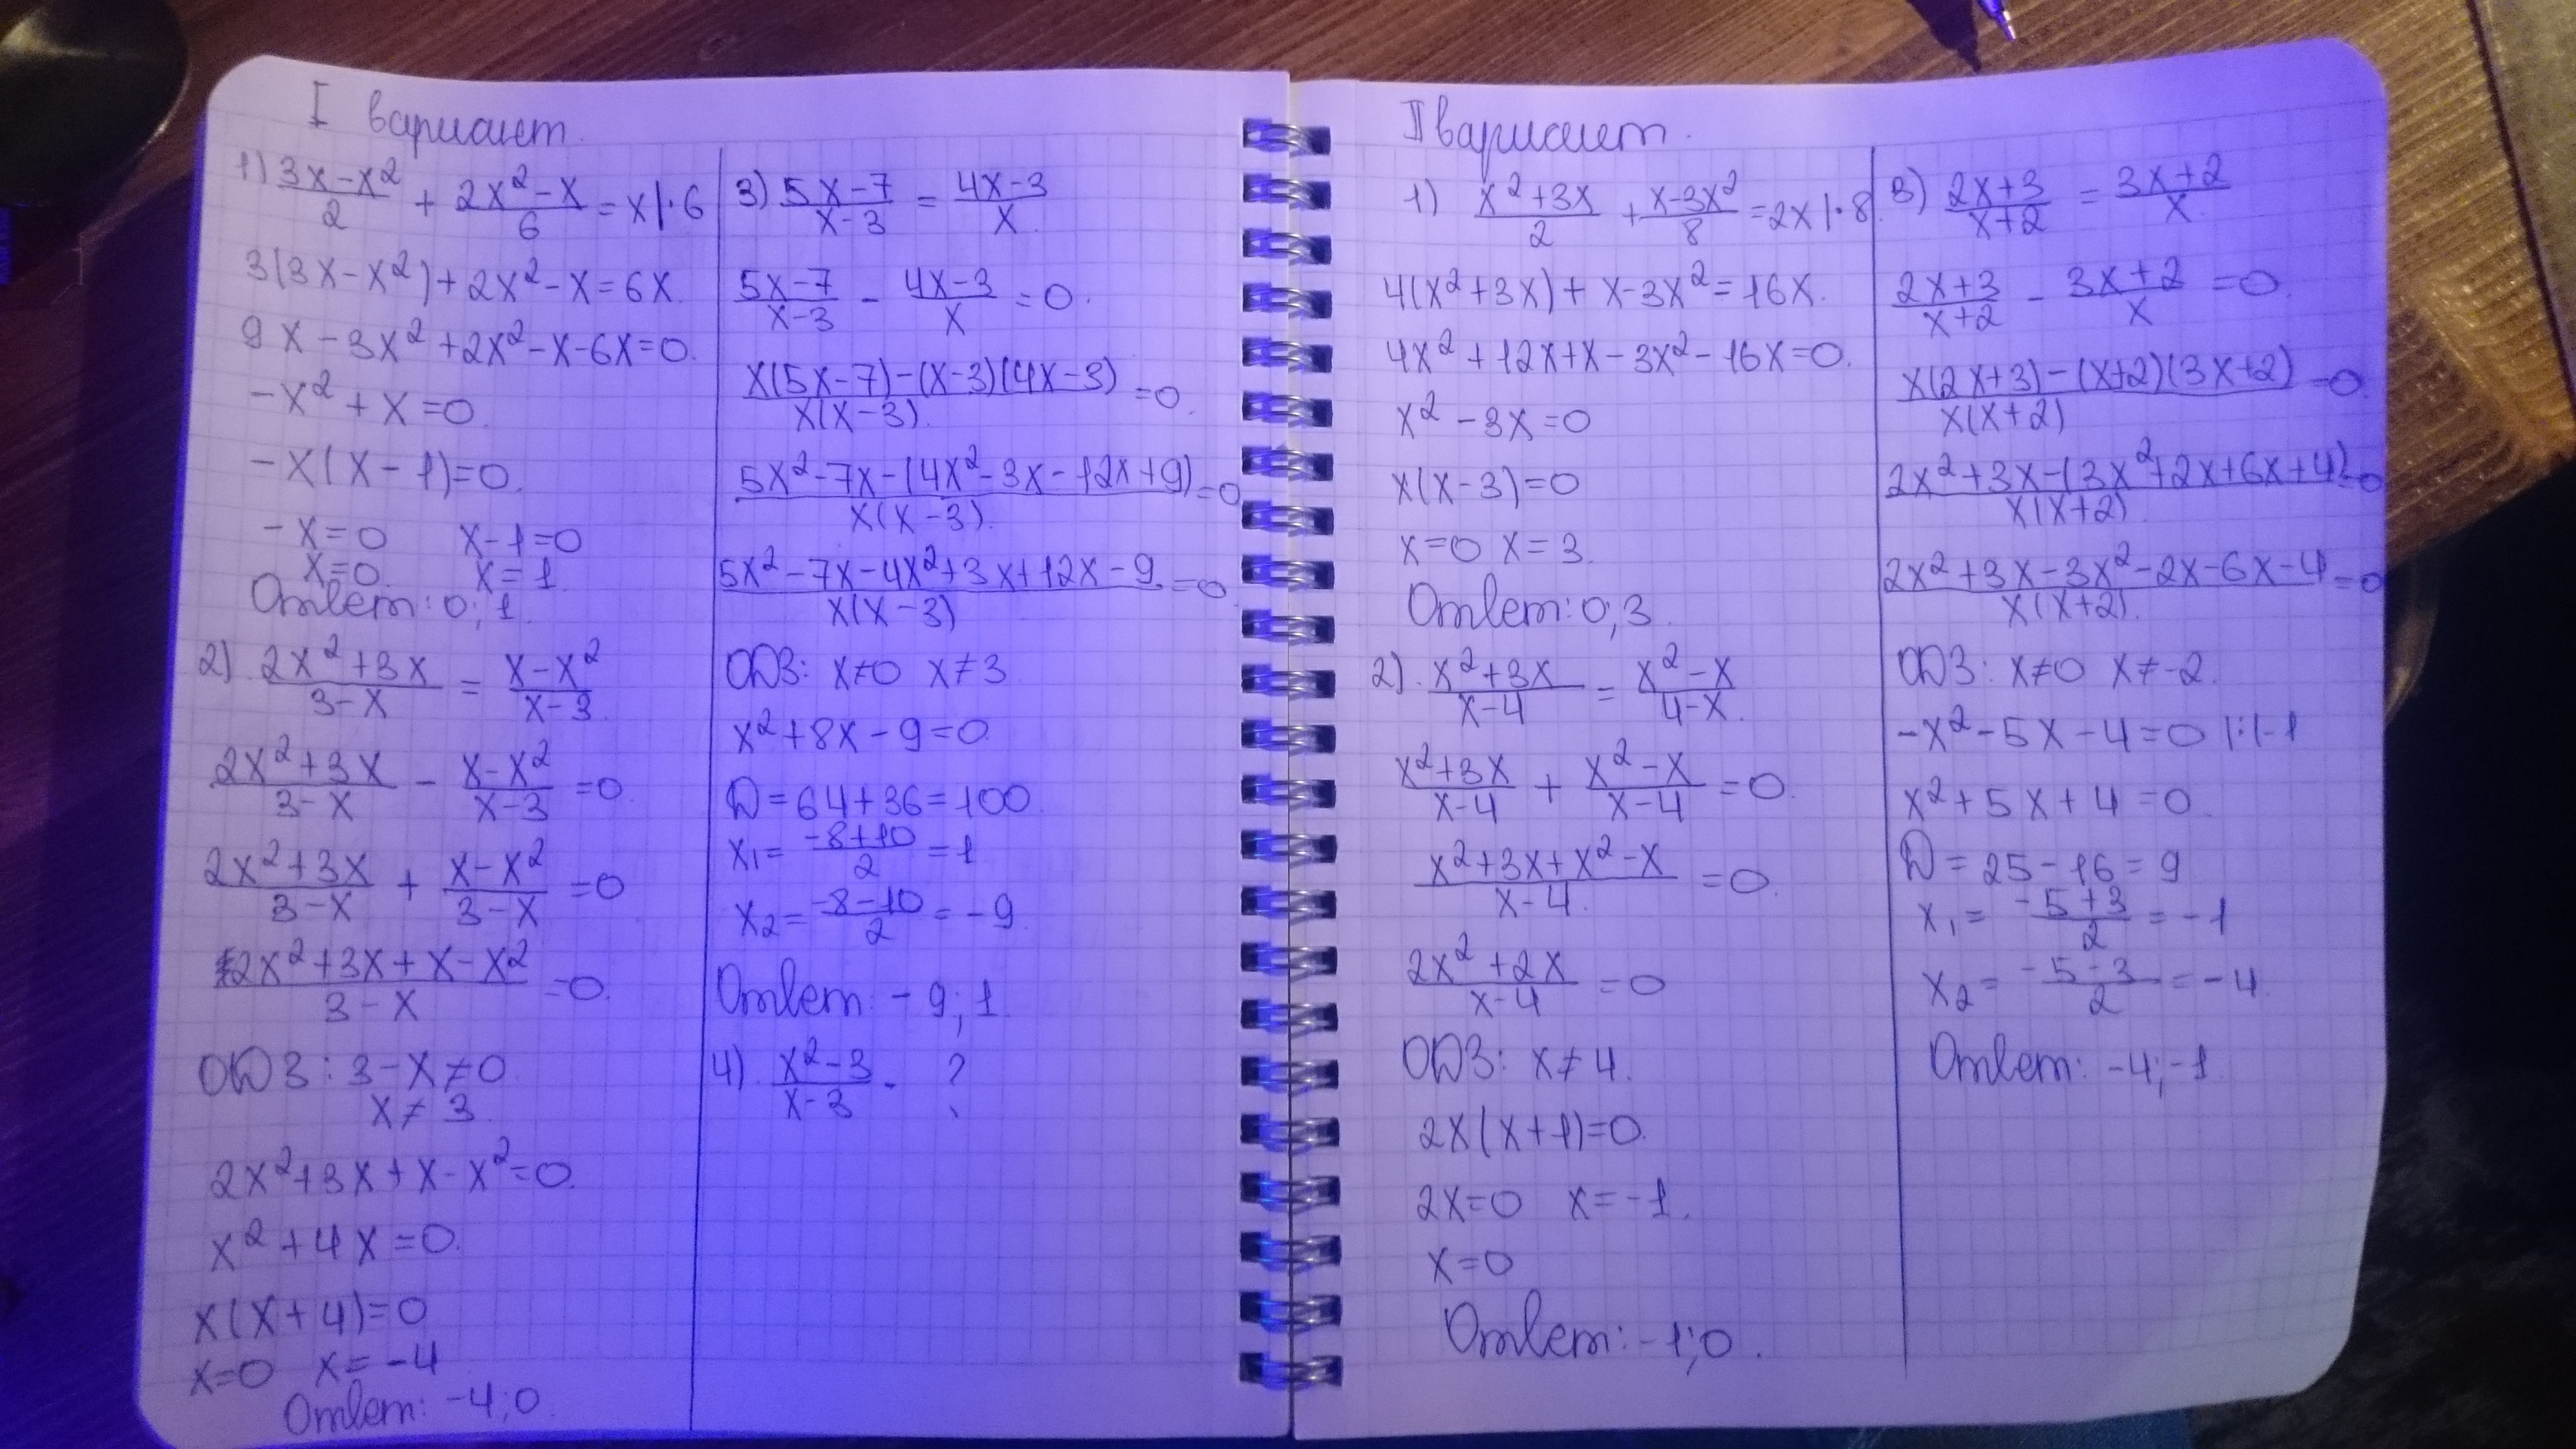 I вариант.
1) (3x-x²)/2 + (2x²-x)/6 = x |·6
3(3x-x²)+2x²-x=6x.
9x-3x²+2x²-x-6x=0.
-x²+x=0.
-x(x-1)=0.
-x=0 x-1=0
x=0. x=1.
Ответ: 0; 1.
2). (2x²+3x)/(3-x) = (x-x²)/(x-3).
(2x²+3x)/(3-x) - (x-x²)/(x-3) =0.
(2x²+3x)/(3-x) + (x-x²)/(3-x) =0
(2x²+3x+x-x²)/(3-x) =0.
ОДЗ: 3-x≠0.
x≠3.
2x²+3x+x-x²=0.
x²+4x=0.
x(x+4)=0
x=0 x=-4
Ответ: -4; 0.
3) (5x-7)/(x-3) = (4x-3)/x.
(5x-7)/(x-3) - (4x-3)/x =0.
(x(5x-7)-(x-3)(4x-3))/(x(x-3)) =0.
(5x²-7x-(4x²-3x-12x+9))/(x(x-3)) =0
(5x²-7x-4x²+3x+12x-9)/(x(x-3)) =0.
ОДЗ: x≠0 x≠3
x²+8x-9=0.
D=64+36=100.
x₁= (-8+10)/2 =1
x₂= (-8-10)/2 = -9.
Ответ: -9; 1.
4). (x²-3)/(x-3) - ?
II вариант.
1) (x²+3x)/2 + (x-3x²)/8 =2x |·8.
4(x²+3x)+x-3x²=16x.
4x²+12x+x-3x²-16x=0.
x²-3x=0
x(x-3)=0
x=0 x=3.
Ответ: 0; 3.
2). (x²+3x)/(x-4) = (x²-x)/(4-x).
(x²+3x)/(x-4) + (x²-x)/(x-4) =0.
(x²+3x+x²-x)/(x-4) =0.
(2x²+2x)/(x-4) =0
ОДЗ: x≠4.
2x(x+1)=0.
2x=0 x=-1.
x=0
Ответ: -1; 0.
3) (2x+3)/(x+2) = (3x+2)/x.
(2x+3)/(x+2) - (3x+2)/x =0.
(x(2x+3)-(x+2)(3x+2))/(x(x+2)) =0.
(2x²+3x-(3x²+2x+6x+4))/(x(x+2)) =0
(2x²+3x-3x²-2x-6x-4)/(x(x+2)) =0
ОДЗ: x≠0 x≠-2.
-x²-5x-4=0 |:(-1
x²+5x+4=0.
D=25-16=9
x₁= (-5+3)/2 =-1
x₂= (-5-3)/2 =-4.
Ответ: -4; -1.